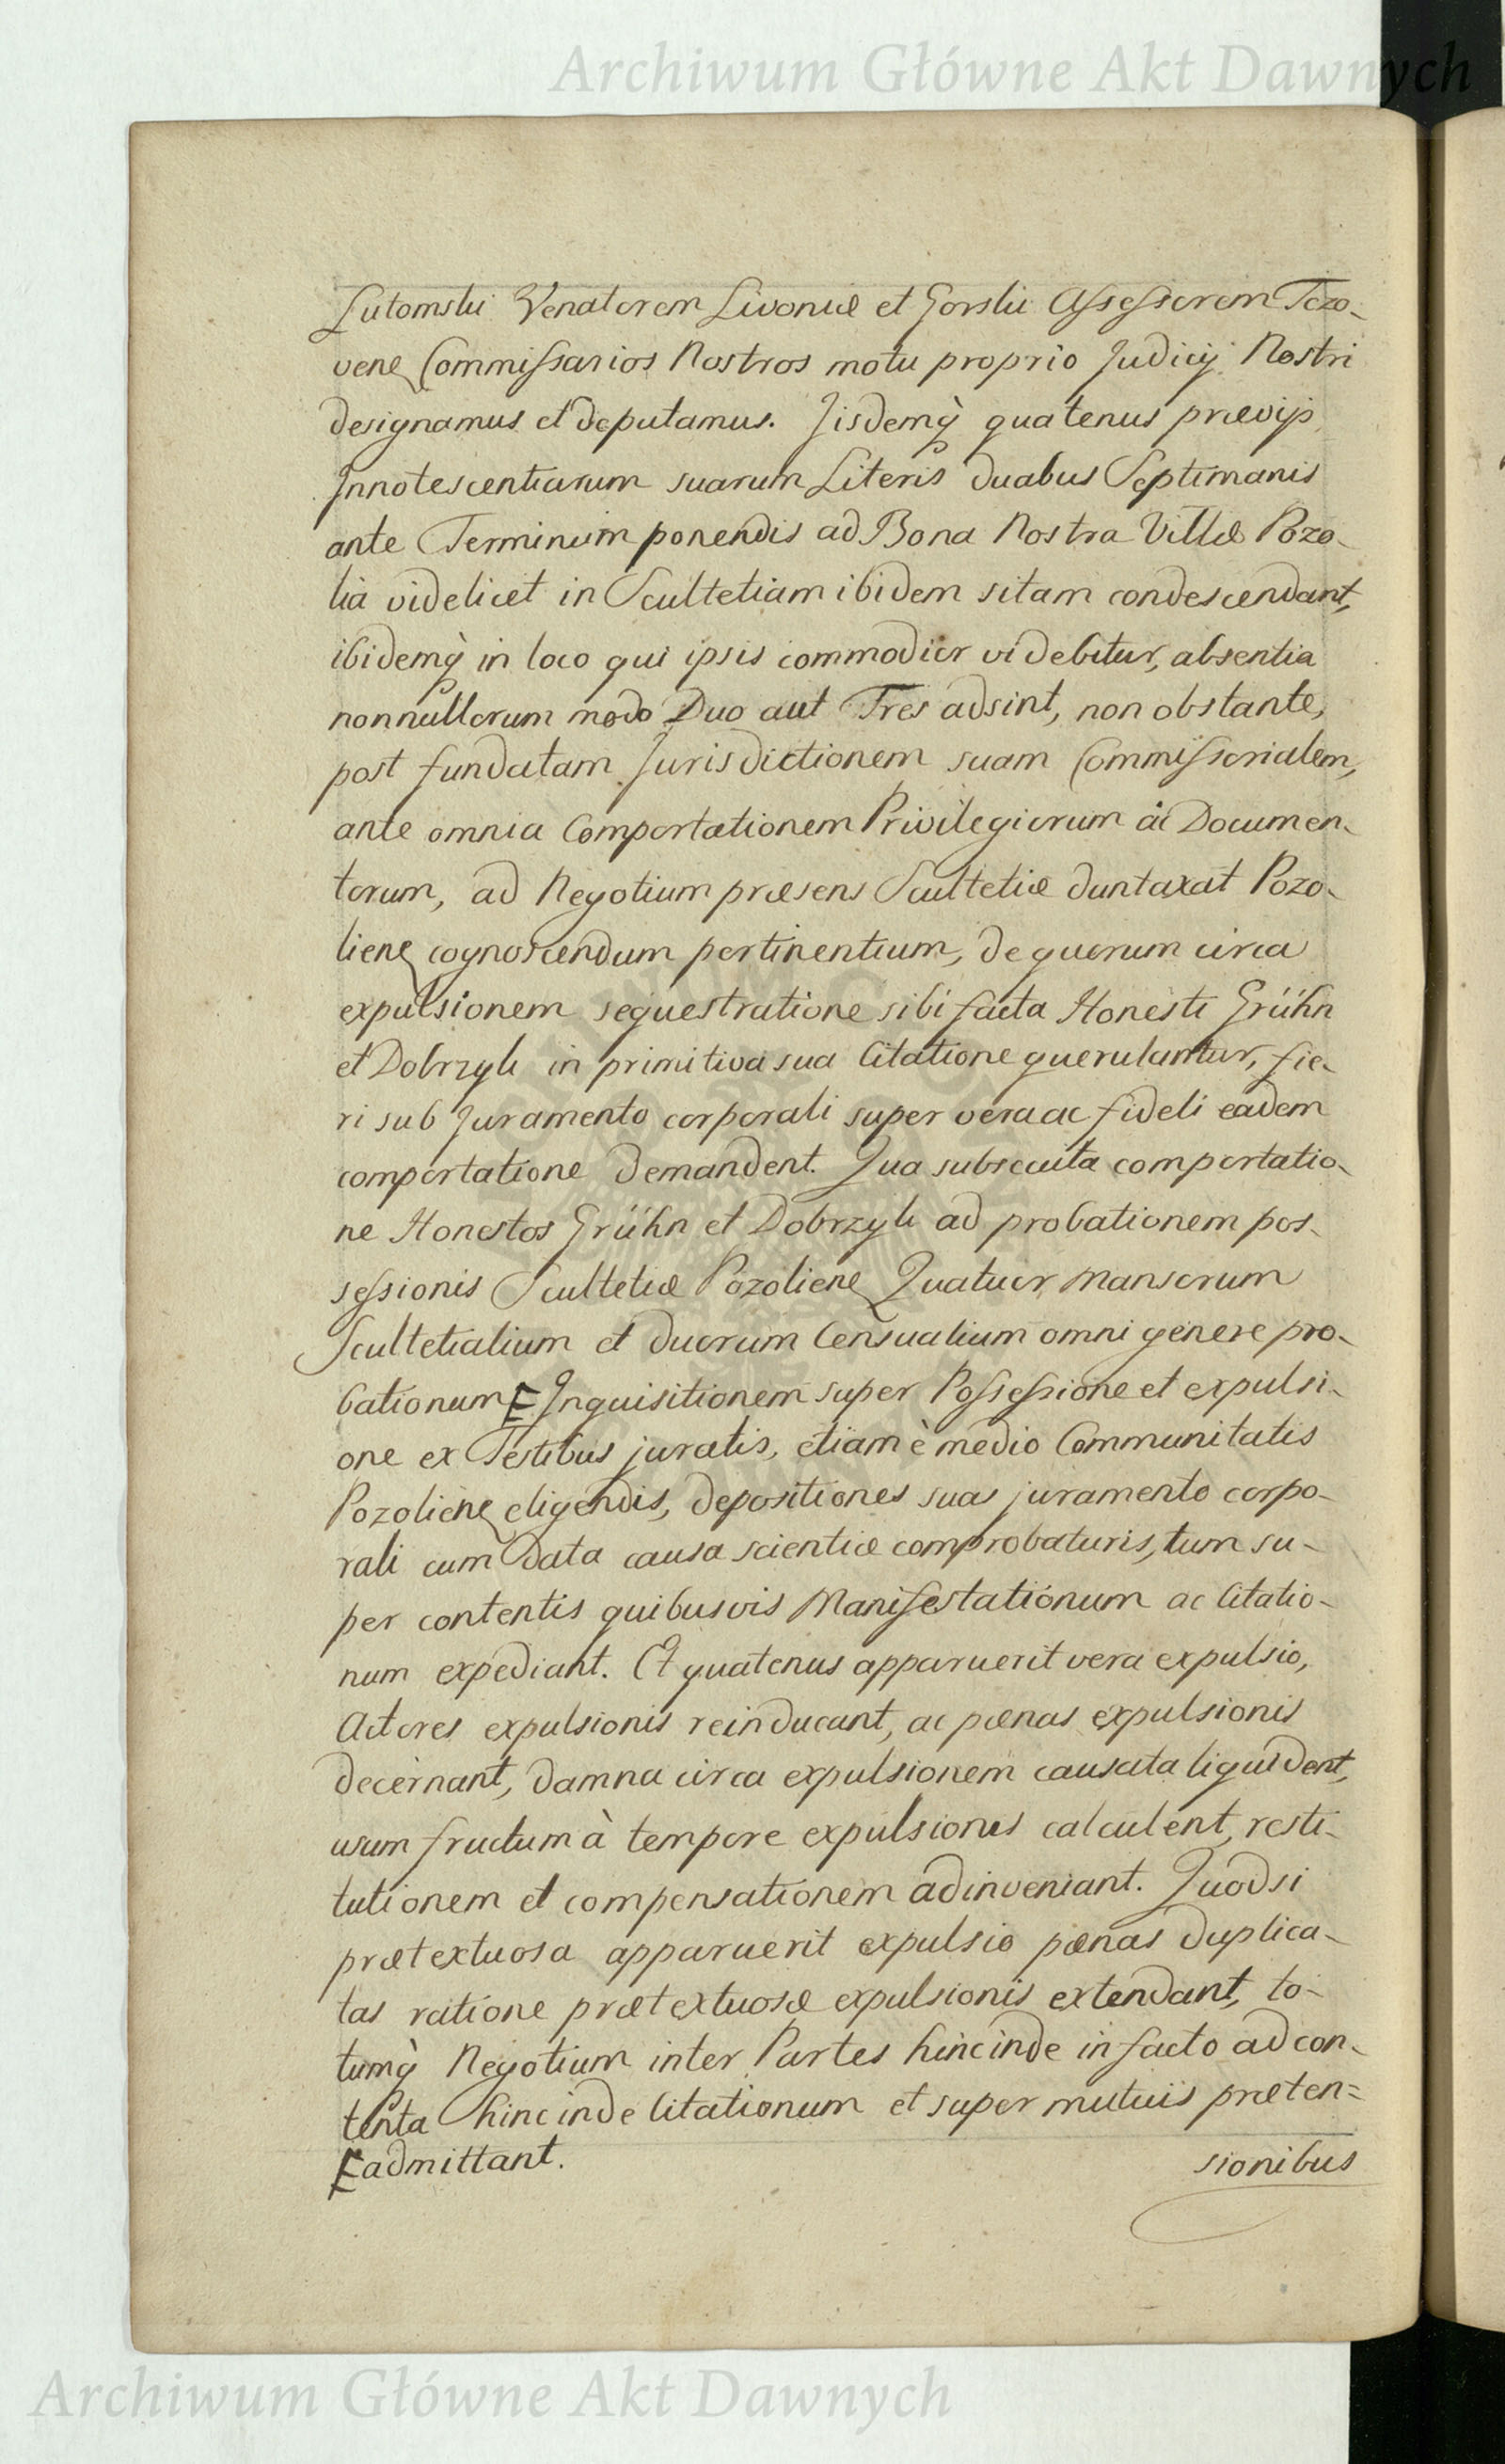 Archiwum Główne Akt Dawnych
Lutomski Venatorem Livoniæ et Gorski Assessorem Tczo-
vene Commissarios Nostros motu proprio Judicij Nostri
designamus et deputamus. Jisdemq̀ quatenus prævijs
Innotescentiarum suarum Literis duabus Septimanis
ante Terminum ponendis ad Bona Nostra Villæ Pozo-
lia videlicet in Scultetiam ibidem sitam condescendant,
ibidemq̀ in loco qui ipsis commodior videbitur, absentia
nonnullorum modo Duo aut Tres adsint, non obstante,
post fundatam Jurisdictionem suam Commissorialem,
ante omnia Comportationem Privilegiorum ac Documen-
torum, ad Negotium præsens Scultetiæ duntaxat Pozo-
liene cognoscendum pertinentium, de quorum circa
expulsionem sequestratione sibi facta Honesti Grühn
et Dobrzyk in primitiva sua Citatione querulantur, fie-
ri sub Juramento corporali super vera ac fideli eadem
comportatione demandent. Qua subsecuta comportatio-
ne Honestos Grühn et Dobrzyk ad probationem pos-
sessionis Scultetiæ Pozoliene Quatuor Mansorum
Scultetialium et duorum Censualium omni genere pro-
bationum Inquisitionem super Possessione et expulsi-
one ex Testibus juratis, etiam è medio Communitatis
Pozoliene eligendis, depositiones suas juramento corpo-
rali cum data causa scientiæ comprobaturis, tum su-
per contentis quibusvis Manifestationum ac Citatio-
num expediant. Et quatenus apparuerit vera expulsio,
Actores expulsionis reinducant, ac pœnas expulsionis
decernant, damna circa expulsionem causata liquident,
usum fructum à tempore expulsionis calculent, resti-
tutionem et compensationem adinveniant. Quodsi
prætextuosa apparuerit expulsio pœnas duplica-
tas ratione prætextuosæ expulsionis extendant, to-
tumq̀ Negotium inter Partes hincinde in facto ad con-
tenta hincinde Citationum et super mutuis præten=
admittant. sionibus
Archiwum Główne Akt Dawnych